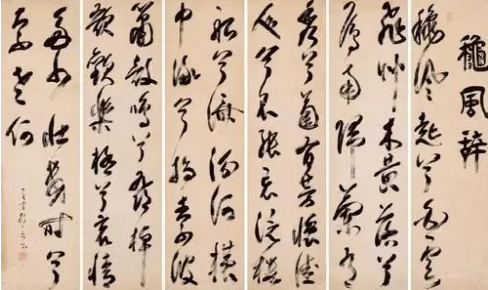 龝風辭
秋風起兮白雲
飛艸木黃落兮
雁南歸蘭有
秀兮菊有芳懷佳
人兮不能忘泛樓
船兮濟汾河橫
中流兮揚素波
簫鼓鳴兮發棹
歌歡樂極兮哀情
多少壯幾時兮
奈老何